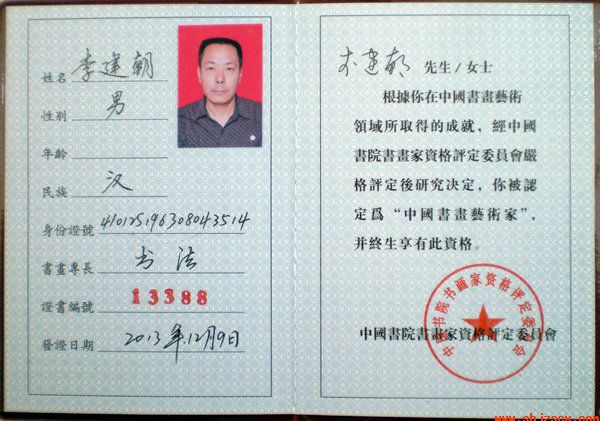 姓名 李建朝
性别 男
年齡
民族 汉
身份證號 410125196308043514
書畫專長 书法
證書編號 13388
發證日期 2013年12月9日
李建朝 先生/女士
根據你在中國書畫藝術
領域所取得的成就，經中國
書院書畫家資格評定委員會嚴
格評定後研究決定，你被認
定爲“中國書畫藝術家”，
并終生享有此資格。
中国书院书画家资格评定委员会
中國書院書畫家資格評定委員會